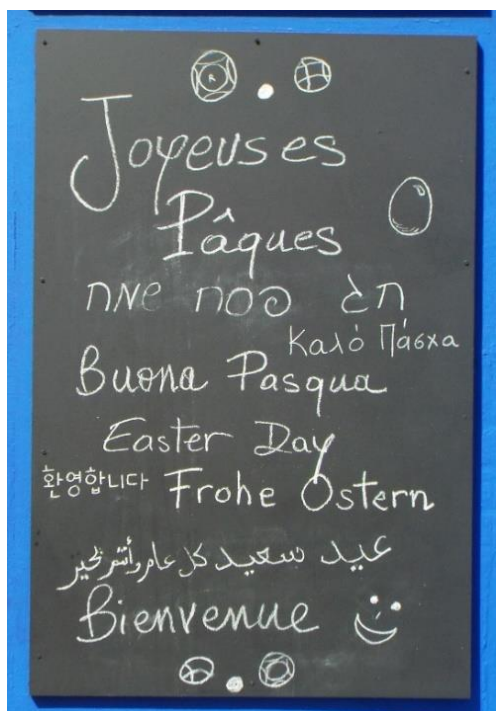 Joyeuses
Pâques
חג פסח שמח
Καλό Πάσχα
Buona Pasqua
Easter Day
환영합니다 Frohe Ostern
عيد سعيد كل عام وأنتم بخير
Bienvenue